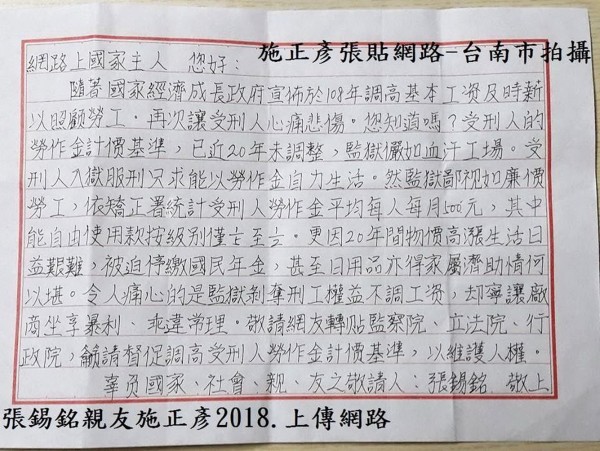 施正彥張貼網路-台南市拍攝
網路上國家主人 您好：
隨著國家經濟成長政府宣佈於108年調高基本工資及時薪
以照顧勞工．再次讓受刑人心痛悲傷。您知道嗎？受刑人的
勞作金計價基準，已近20年未調整，監獄儼如血汗工場。受
刑人入獄服刑只求能以勞作金自力生活。然監獄鄙視如廉價
勞工，依矯正署統計受刑人勞作金平均每人每月500元，其中
能自由使用款按級別僅至。更因20年間物價高漲生活日
益艱難，被迫停繳國民年金，甚至日用品亦得家屬濟助情何
以堪。令人痛心的是監獄剝奪刑工權益不調工資，却寧讓廠
商坐享暴利、乖違常理。敬請網友轉貼監察院、立法院、行
政院，籲請督促調高受刑人勞作金計價基準，以維護人權。
辜負國家、社會、親、友之敬請人：張錫銘 敬上
張錫銘親友施正彥2018.上傳網路